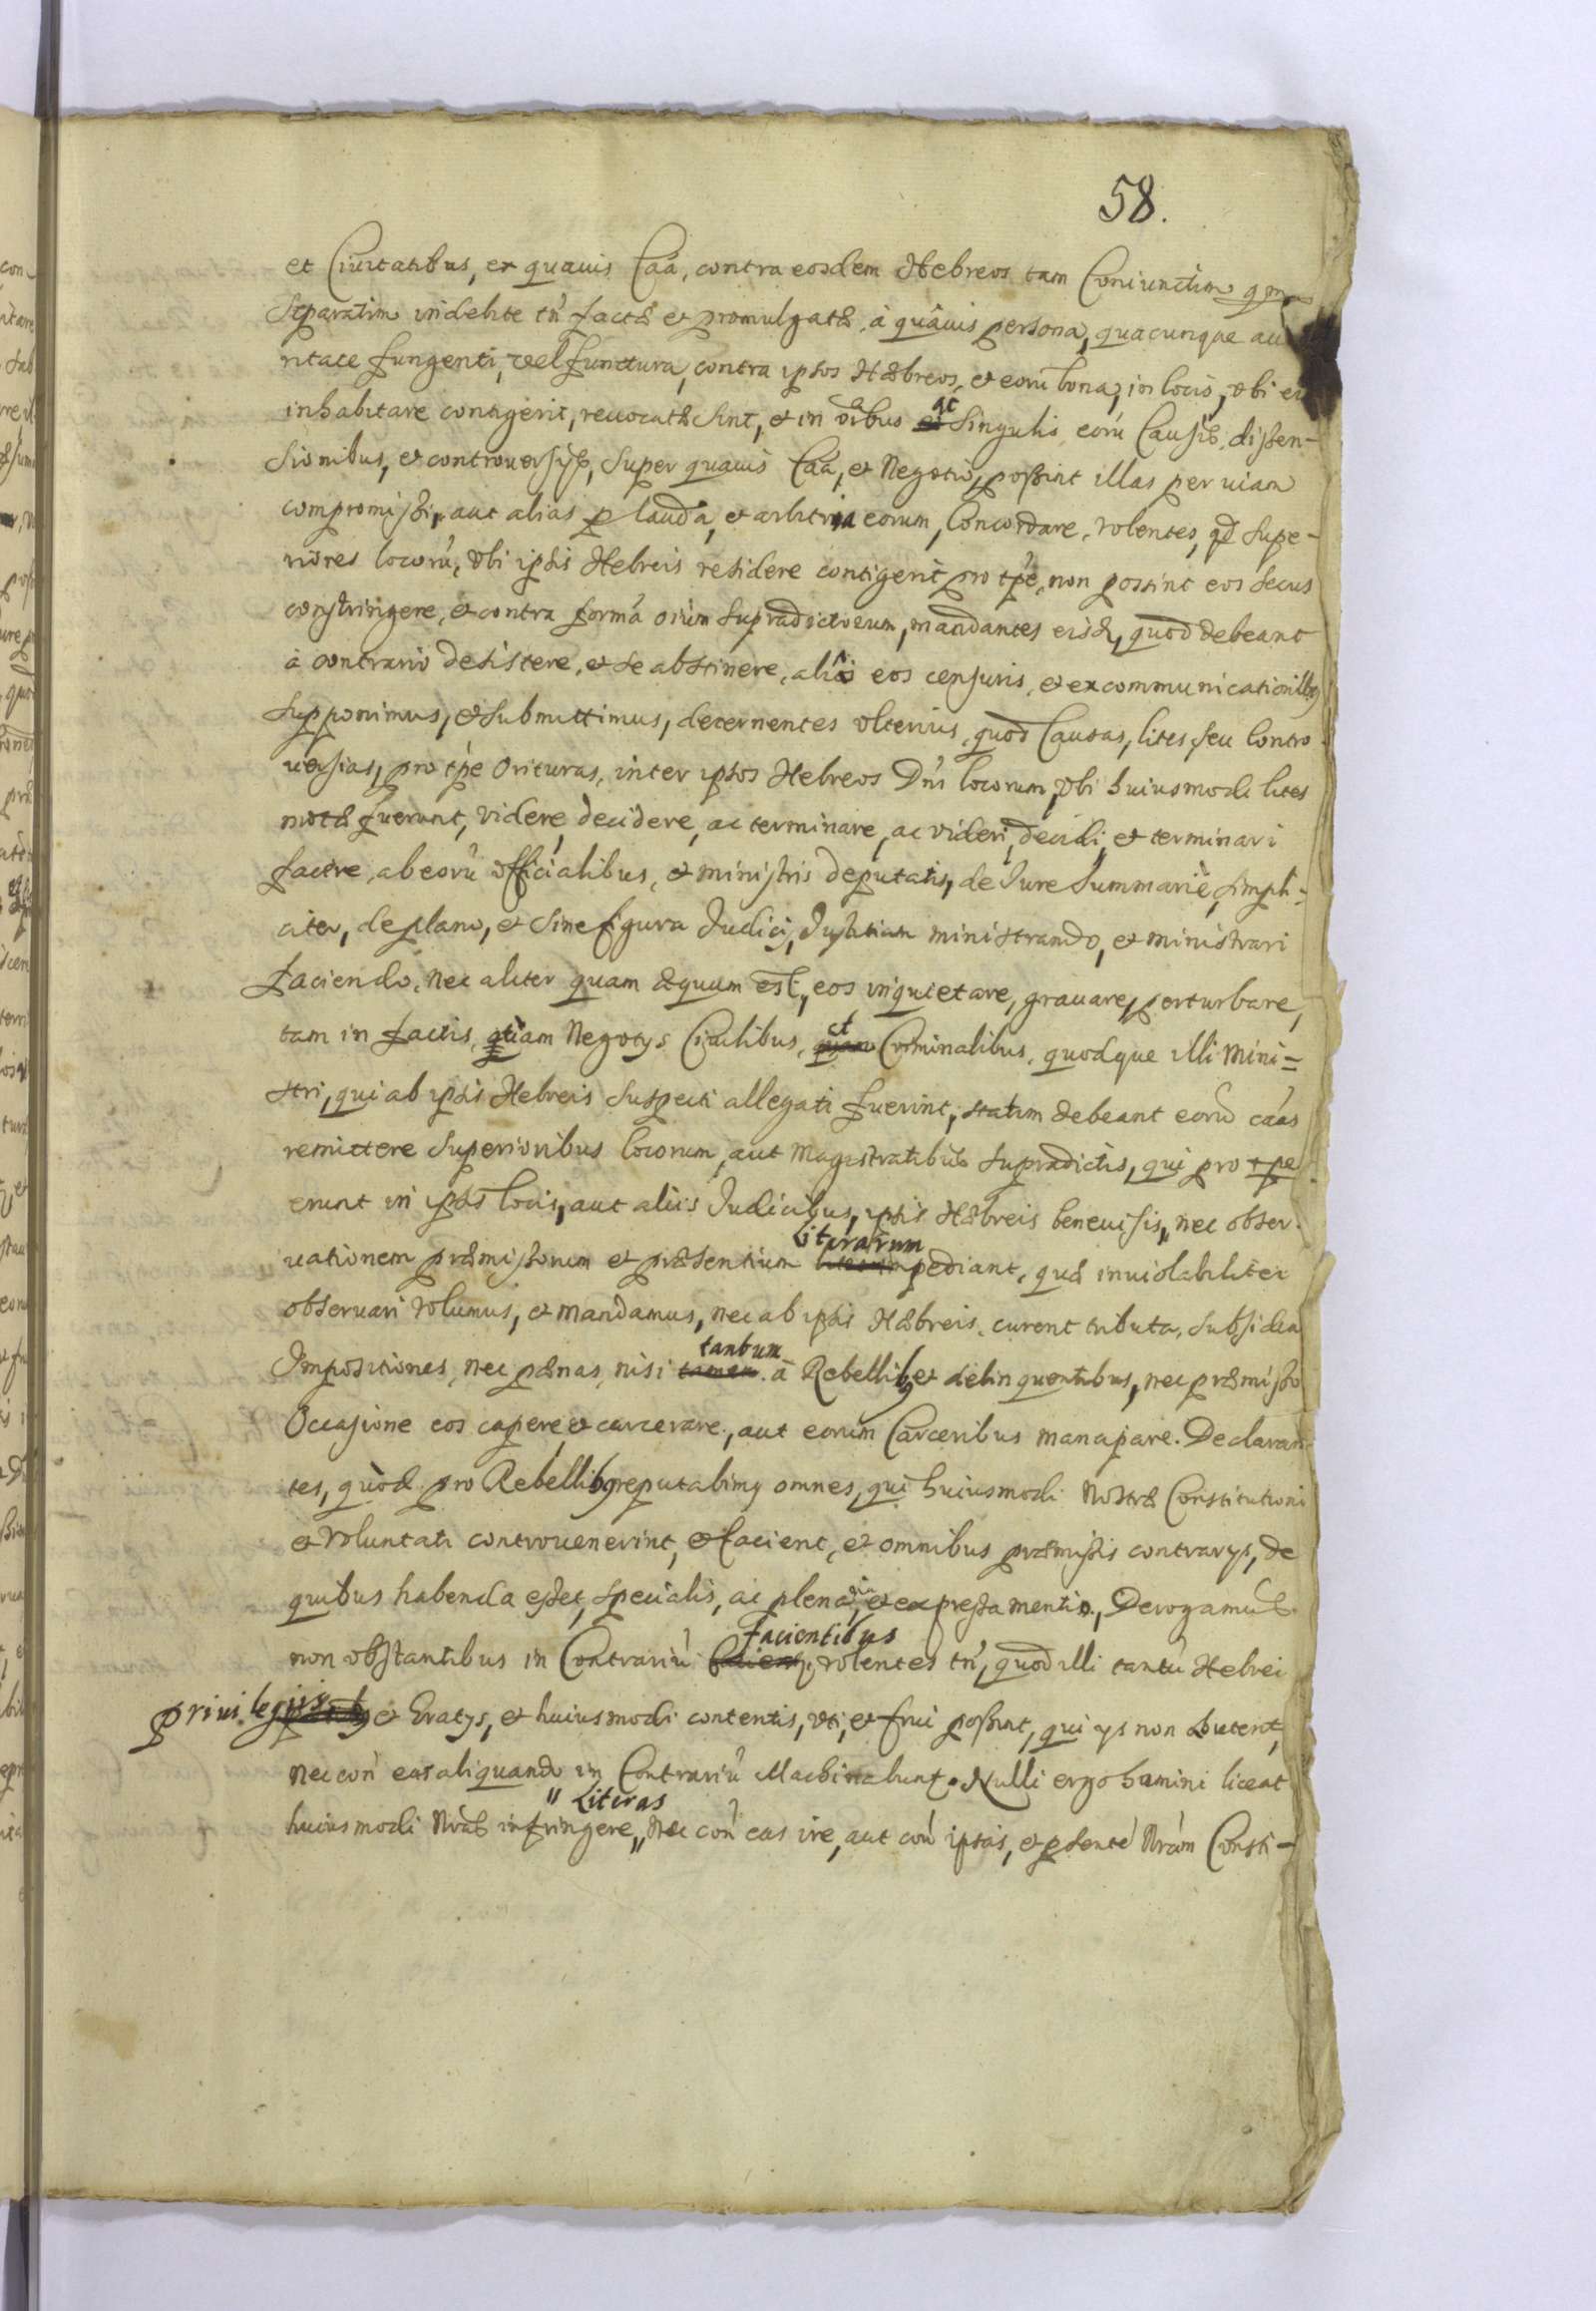 58.
et Ciuitatibus, ex quauis Caã, contra eosdem Hebreos tam Coniunctim qm
Separatim indebite tñ factæ et promulgatæ, à quâuis persona, quacunque au
ritate fungenti, vel functura, contra ipsos Hæbreos, et eorũ bona, in locis, vbi
inhabitare contigerit, reuocatæ sint, et in oĩbus ac Singulis eorũ Causis, dissen-
sionibus, et controuersijs, super quauis Caã, et Negotio, possint illas per uiam
compromissi, aut alias p lauda, et arbitria eorum, Concordare, volentes, qd supe-
riores locorũ, vbi ipsis Hebreis residere contigerit pro tpẽ, non possint eos secus
constringere, et contra formã oiũm supradictorum, mandantes eisd, quod debeant
à contrario desistere, et se abstinere, aliâs eos censuris, et excommunicationibq
supponimus, et submittimus, decernentes vlterius, quod Causas, lites, seu Contro
uersias, pro tpẽ Orituras, inter ipsos Hebreos Dñi locorum, vbi huiusmodi lites
motæ fuerunt, videre, decidere, ac terminare, ac videri, decidi, et terminari
facere, ab eorũ officialibus, et ministris deputatis, de Iure Summariè, simpli-
citer, de plano, et sine figura Iudicij, Iustitiam ministrando, et ministrari
faciendo, nec aliter quam æquum est, eos inquietare, grauare, perturbare,
tam in factis, quam Negotys Ciuilibus, et Criminalibus, quodque illi Mini=
stri, qui ab ipsis Hebreis suspecti allegati fuerint, statim debeant eorũ caãs
remittere Superioribus locorum, aut Magistratibus supradictis, qui pro tpe
erunt in ipsis locis, aut aliis Iudicibus, ipsis Hæbreis beneuisis, nec obser-
uationem præmissorum et præsentium Literarum impediant, quæ inuiolabiliter
obseruari volumus, et mandamus, nec ab ipsis Hæbreis, curent tributa, subsidia
Impositiones, nec pænas, nisi tantum à Rebellibq et delinquentibus, nec præmisso
Occasione eos capere, et carcerare, aut eorum Carceribus mancipare. Declaran
tes, quòd pro Rebellibq reputabimq omnes, qui huiusmodi Nostræ Constitutioni
et voluntati controuenerint, et facient, et omnibus præmissis contrarys, de
quibus habenda esset, specialis, ac plenaria, et expressa mentio, Derogamus
non obstantibus in Contrariũ facientibus volentes tñ, quod illi tantũ Hebrei
priuilegiis et Gratys, et huiusmodi contentis, vti, et frui possint, qui ys non abutent,
nec coñ eas aliquando in Contrariũ Machinabunt. Nulli ergo homini liceat
huiusmodi Nrãs infringere, " Literas Nec coñ eas ire, aut coñ ipsas, et psentẽ Nrãm Consti-